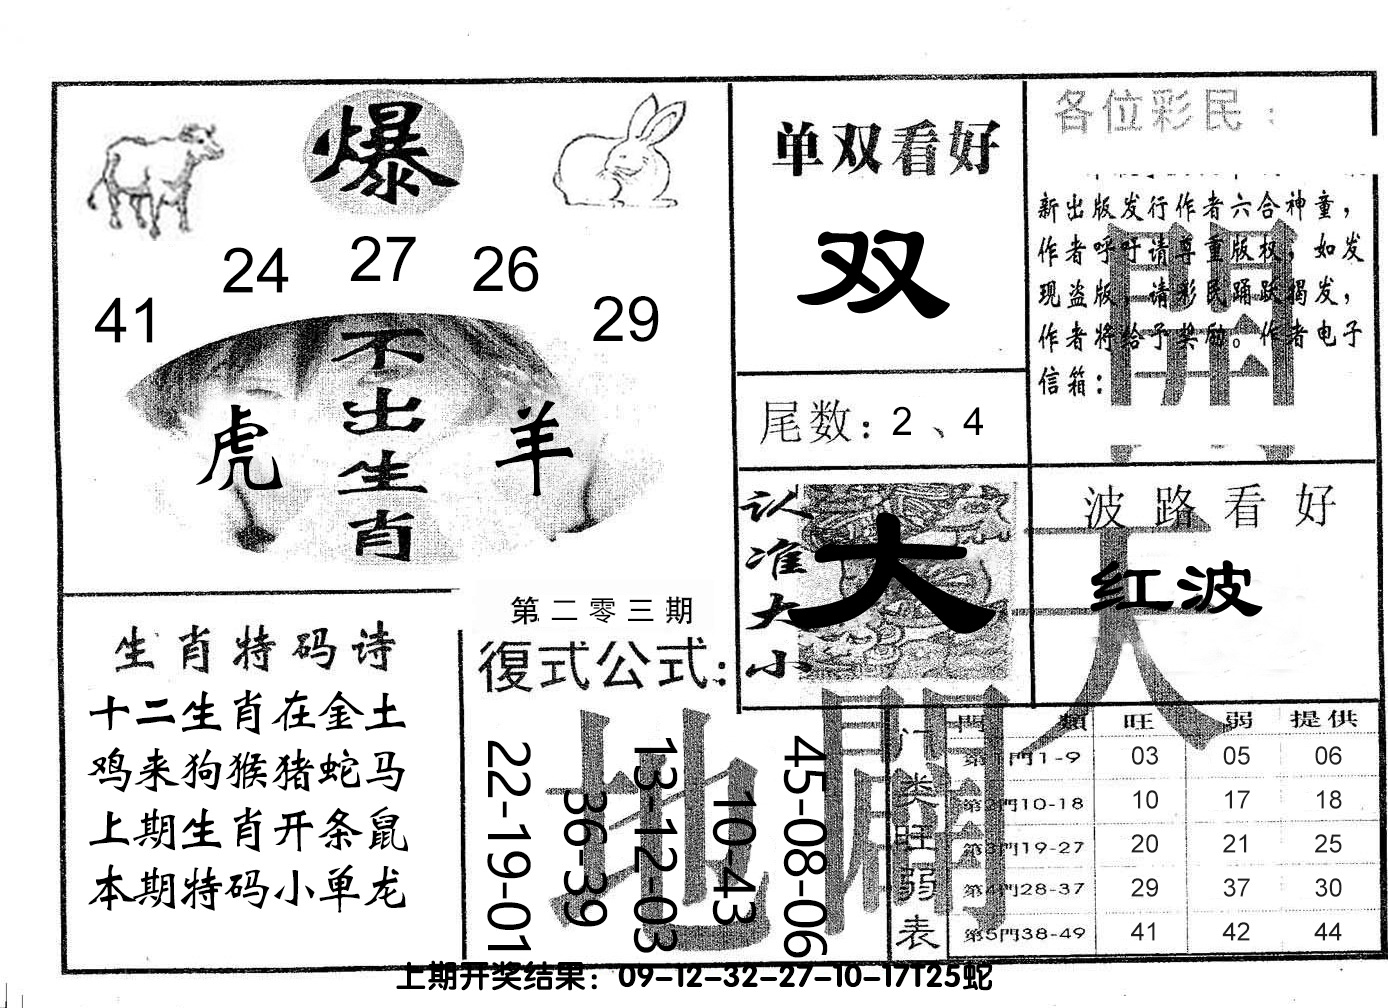 爆
41 24 27 26 29
不出生肖
虎 羊
单双看好
双
尾数：2、4
各位彩民：
新出版发行作者六合神童，
作者呼吁请尊重版权，如发
现盗版，请彩民踊跃揭发，
作者将给予奖励。作者电子
信箱：
開
认准大小
大
波路看好
红波
天
生肖特码诗
十二生肖在金土
鸡来狗猴猪蛇马
上期生肖开条鼠
本期特码小单龙
第二零三期
復式公式：
22-19-01
36-39
13-12-03
10-43
45-08-06
地
開
门类旺弱表
門類 旺 弱 提供
第1門1-9 03 05 06
第2門10-18 10 17 18
第3門19-27 20 21 25
第4門28-37 29 37 30
第5門38-49 41 42 44
上期开奖结果：09-12-32-27-10-17T25蛇